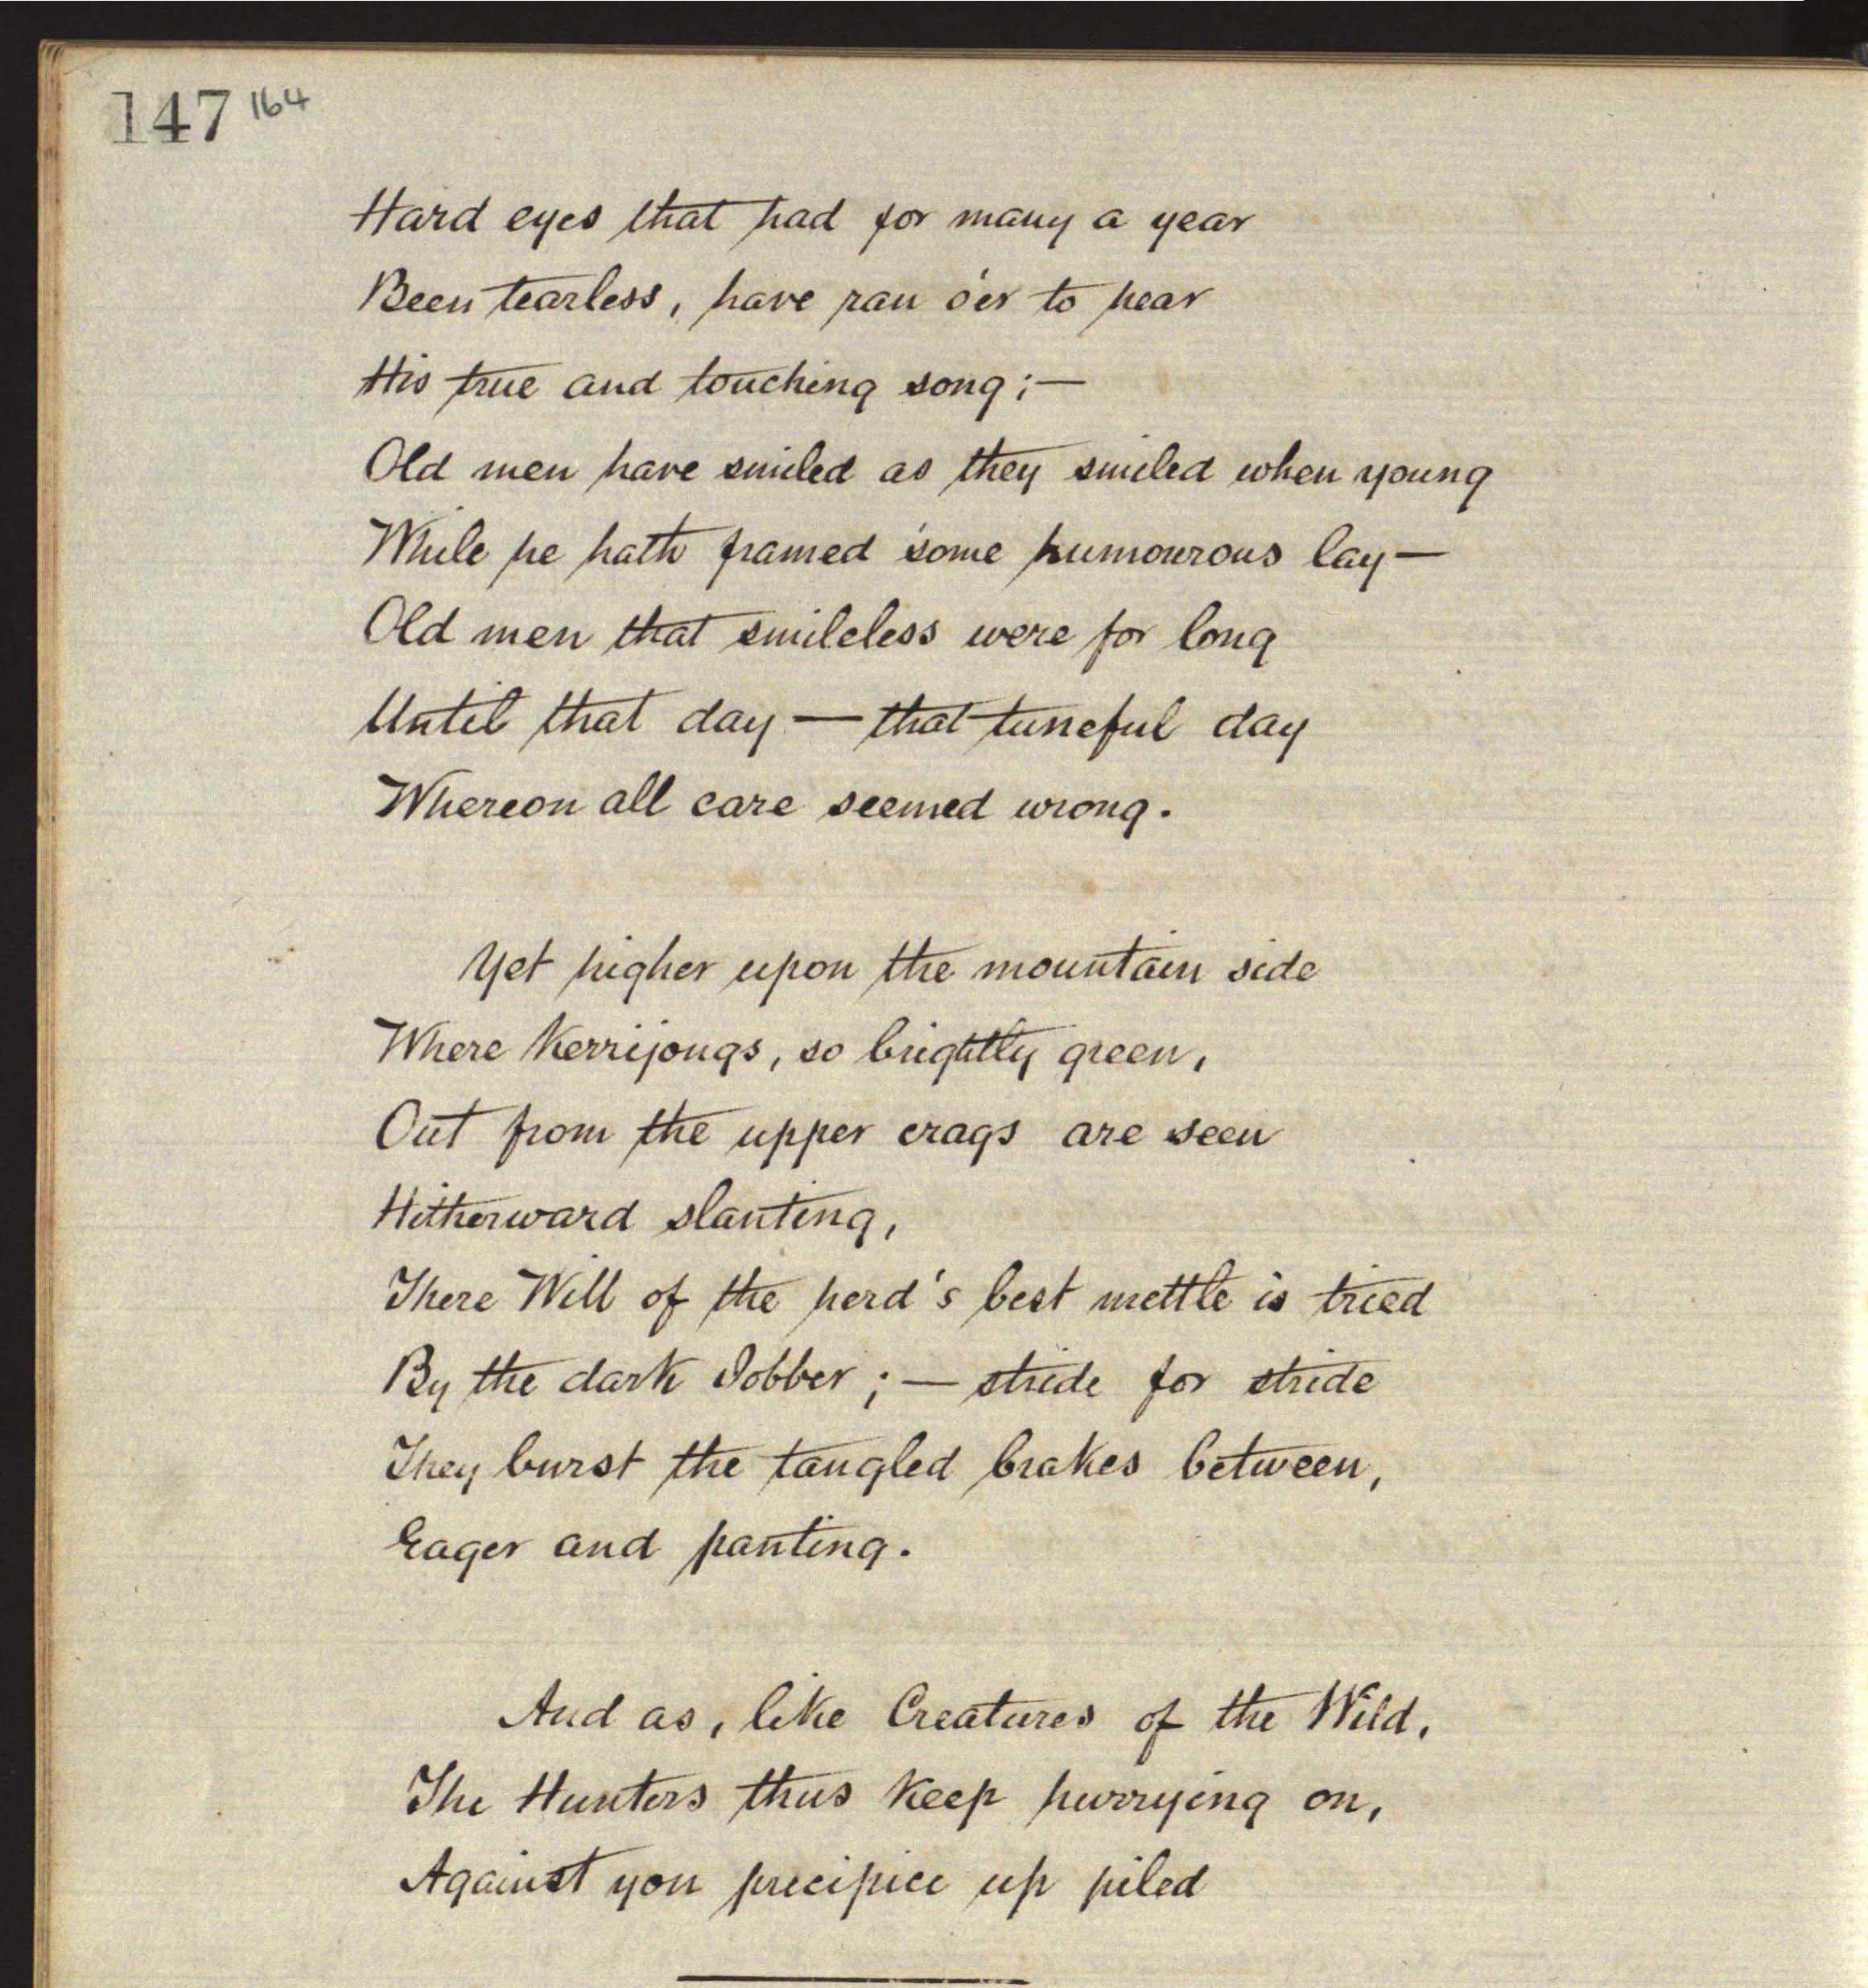 147 164
Hard eyes that had for many a year
Been tearless, have ran o'er to hear
His true and touching song;—
Old men have smiled as they smiled when young
While he hath framed some humourous lay—
Old men that smileless were for long
Until that day — that tuneful day
Whereon all care seemed wrong.
Yet higher upon the mountain side
Where Kerrijongs, so brightly green,
Out from the upper crags are seen
Hitherward slanting,
There Will of the herd's best mettle is tried
By the dark Jobber; — stride for stride
They burst the tangled brakes between,
Eager and panting.
And as, like Creatures of the Wild,
The Hunters thus keep hurrying on,
Against yon precipice up piled